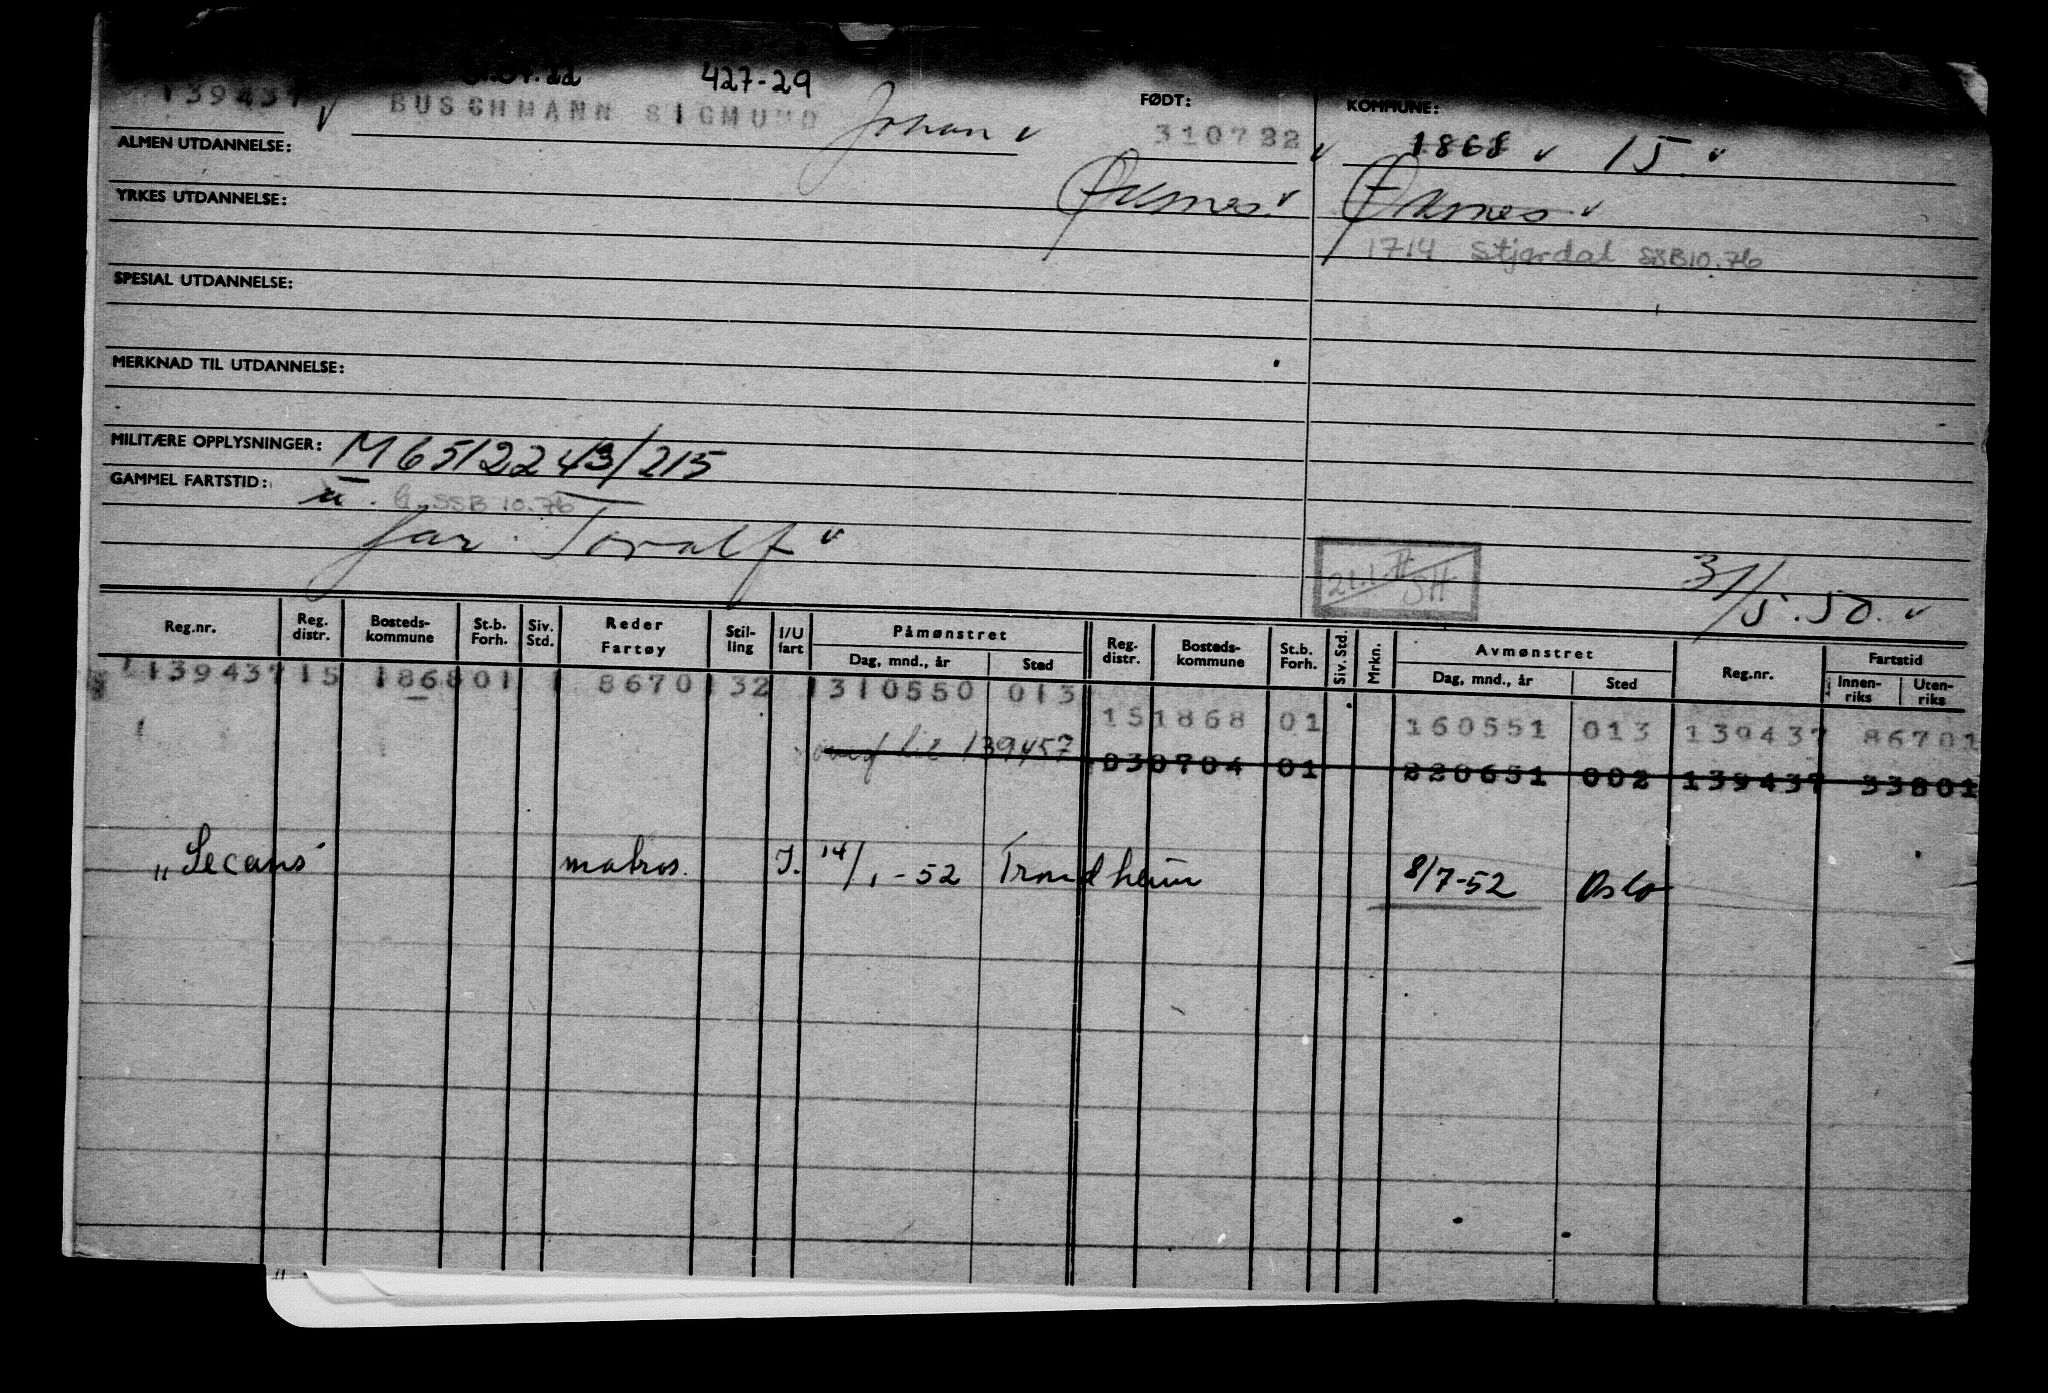 427-29
139437 v BUSCHMANN SIGMUND Johan v FØDT: 310722 v KOMMUNE: 1868 v 15 v
ALMEN UTDANNELSE:
YRKES UTDANNELSE: Øksnes v Øksnes v
1714 Stjørdal SSB10.76
SPESIAL UTDANNELSE:
MERKNAD TIL UTDANNELSE:
MILITÆRE OPPLYSNINGER: M6512243/215
GAMMEL FARTSTID: u. G. SSB 10.76
far: Toralf v
31/5.50. v
Reg.nr. Reg. distr. Bosteds-kommune St.b. Forh. Siv. Std. Reder Fartøy Stil-ling I/U fart Påmønstret Dag, mnd., år Sted Reg. distr. Bosteds-kommune St.b. Forh. Siv. Std. Mrkn. Avmønstret Dag, mnd., år Sted Reg.nr. Fartstid Innen-riks Uten-riks
139437 15 1868 01 1 8670 132 1310550 013
151868 01 160551 013 139437 86701
til 139457 030704 01 220651 002 139437 33801
"Secans" matros. I. 14/1-52 Trondheim 8/7-52 Oslo